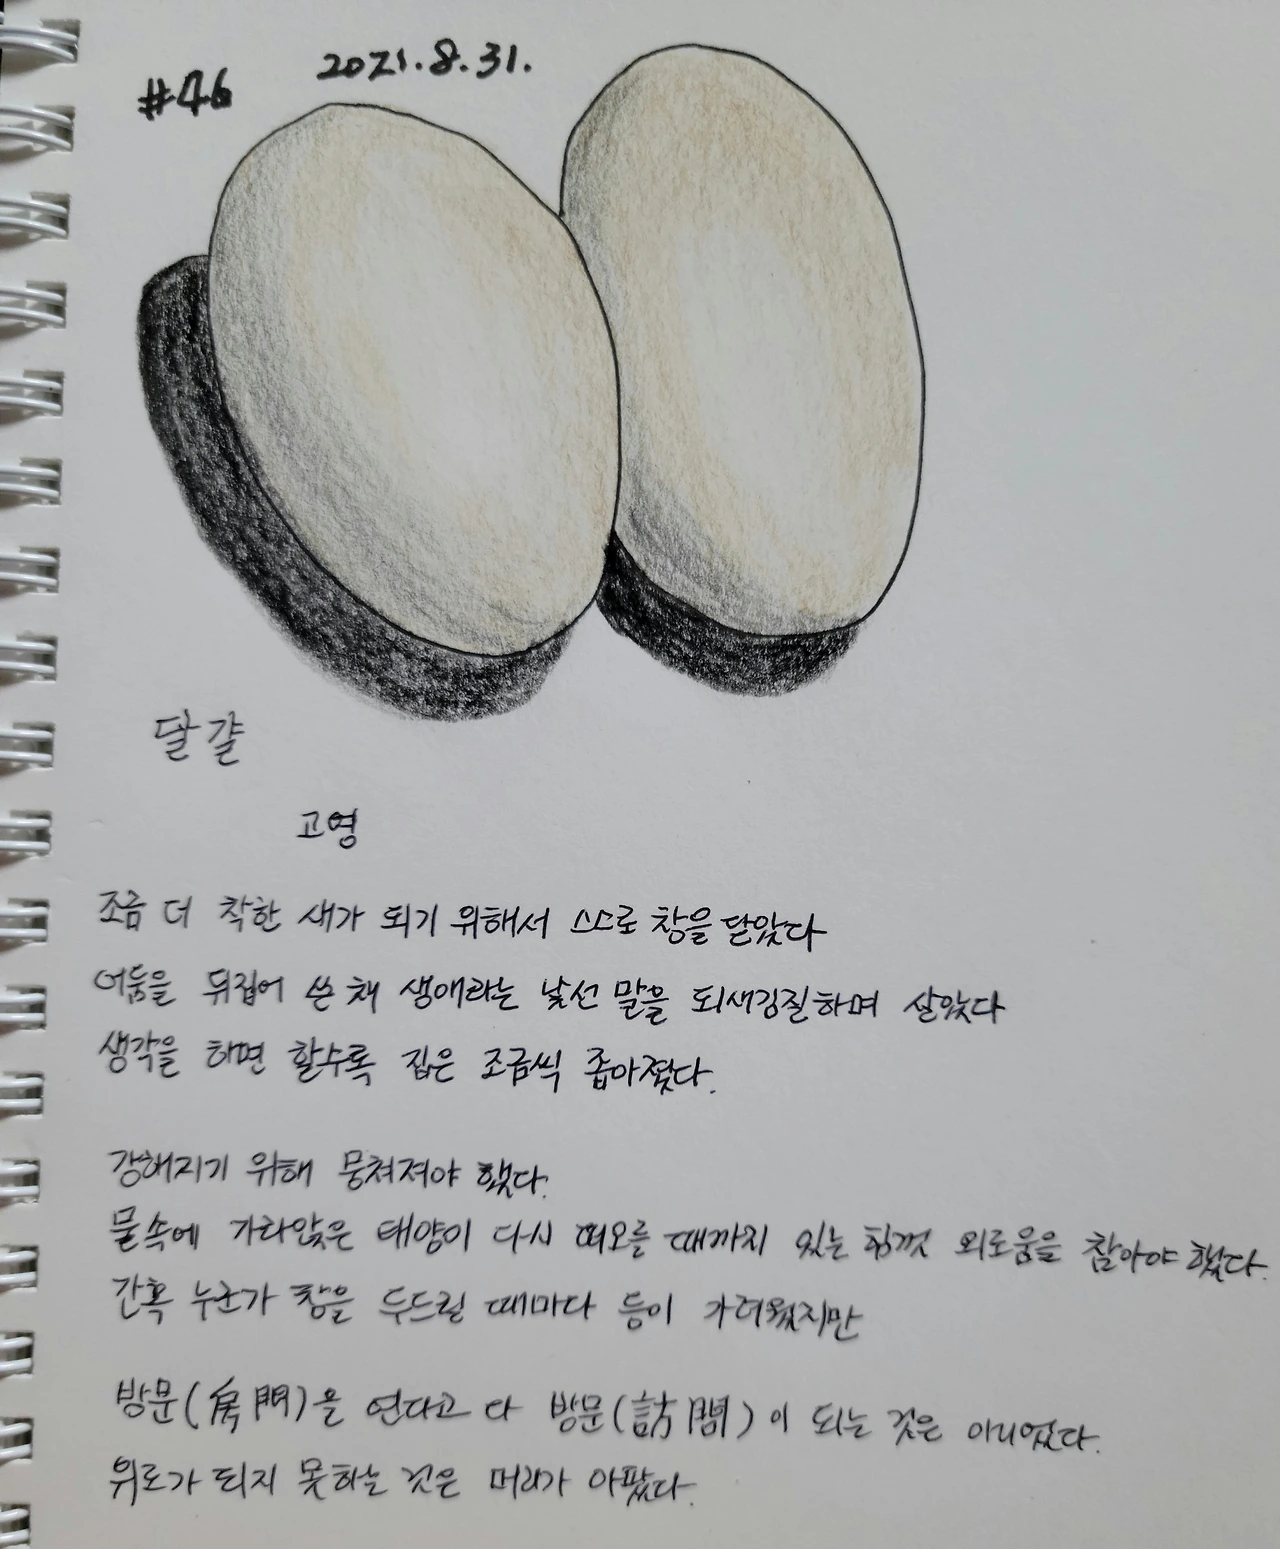 #46 2021.8.31.
달걀
고영
조금 더 착한 새가 되기 위해서 스스로 창을 닫았다
어둠을 뒤집어 쓴 채 생애라는 낯선 말을 되새김질하며 살았다
생각을 하면 할수록 집은 조금씩 좁아졌다.
강해지기 위해 뭉쳐져야 했다.
물속에 가라앉은 태양이 다시 떠오를 때까지 있는 힘껏 외로움을 참아야 했다.
간혹 누군가 창을 두드릴 때마다 등이 가려웠지만
방문(房門)을 연다고 다 방문(訪問)이 되는 것은 아니었다.
위로가 되지 못하는 것은 머리가 아팠다.